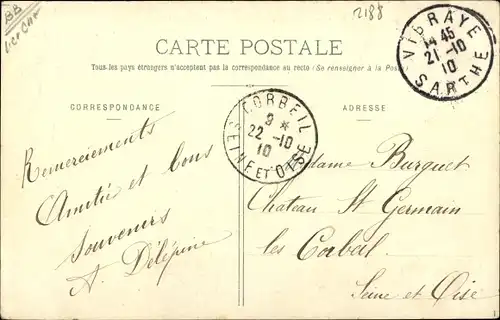 2188
BB
CARTE POSTALE
Tous les pays étrangers n'acceptent pas la correspondance au recto (Se renseigner à la Poste)
CORRESPONDANCE
ADRESSE
VIBRAYE
14 45
21 -10
10
SARTHE
CORBEIL
9 *
22 -10
10
SEINE ET OISE
Remerciements
Amitié et bons
souvenirs
A. Délépine
Madame Burguet
Chateau St Germain
les Corbeil
Seine et Oise